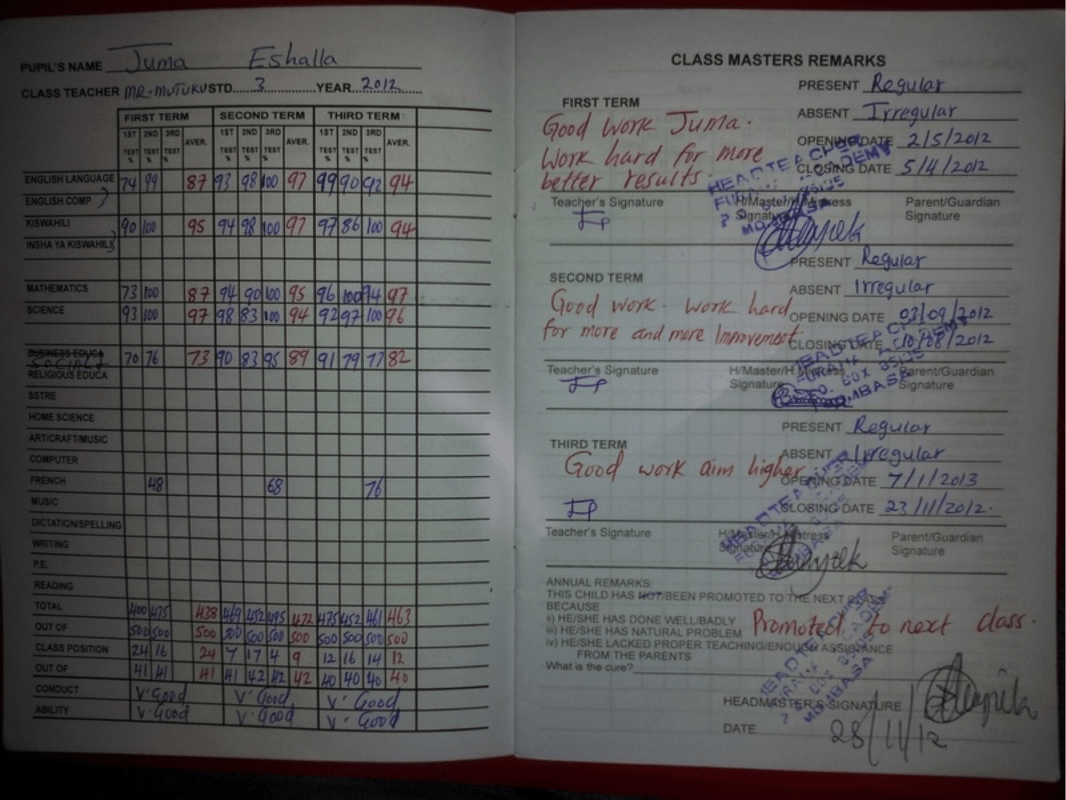 PUPIL'S NAME Juma Eshalla
CLASS TEACHER MR. MUTUKU STD. 3 YEAR 2012
FIRST TERM SECOND TERM THIRD TERM
1ST TEST % 2ND TEST % 3RD TEST % AVER. 1ST TEST % 2ND TEST % 3RD TEST % AVER. 1ST TEST % 2ND TEST % 3RD TEST % AVER.
ENGLISH LANGUAGE 74 99 87 93 98 100 97 99 90 92 94
ENGLISH COMP
KISWAHILI 90 100 95 94 98 100 97 97 86 100 94
INSHA YA KISWAHILI
MATHEMATICS 73 100 87 94 90 100 95 96 100 94 97
SCIENCE 93 100 97 98 83 100 94 92 97 100 96
BUSINESS EDUCA
70 76 73 90 83 95 89 91 79 77 82
RELIGIOUS EDUCA
SSTRE
HOME SCIENCE
ART/CRAFT/MUSIC
COMPUTER
FRENCH 48 68 76
MUSIC
DICTATION/SPELLING
WRITING
P.E.
READING
TOTAL 400 475 438 469 452 495 472 475 452 461 463
OUT OF 500 500 500 500 500 500 500 500 500 500 500
CLASS POSITION 24 16 24 7 17 4 9 12 16 14 12
OUT OF 41 41 41 41 42 42 42 40 40 40 40
CONDUCT V.Good V.Good V.Good
ABILITY V.Good V.Good V.Good
CLASS MASTERS REMARKS
PRESENT Regular
FIRST TERM
ABSENT Irregular
Good work Juma.
OPENING DATE 2/5/2012
Work hard for more
CLOSING DATE 5/4/2012
better results.
HEADTEACHER
ACADEMY
MOMBASA
Teacher's Signature H/Master/H/Mistress Signature Parent/Guardian Signature
PRESENT Regular
SECOND TERM
ABSENT Irregular
Good work. Work hard
OPENING DATE 03/09/2012
for more and more Improvement
CLOSING DATE 10/08/2012
HEADTEACHER
ACADEMY
P.O. BOX 85125
MOMBASA
Teacher's Signature H/Master/H/Mistress Signature Parent/Guardian Signature
PRESENT Regular
THIRD TERM
ABSENT Irregular
Good work aim higher
OPENING DATE 7/1/2013
CLOSING DATE 23/11/2012.
HEADTEACHER
MOMBASA
Teacher's Signature H/Master/H/Mistress Signature Parent/Guardian Signature
ANNUAL REMARKS:
THIS CHILD HAS NOT/BEEN PROMOTED TO THE NEXT CLASS
BECAUSE
ii) HE/SHE HAS DONE WELL/BADLY
iii) HE/SHE HAS NATURAL PROBLEM
Promoted to next class.
iv) HE/SHE LACKED PROPER TEACHING/ENOUGH ASSISTANCE
FROM THE PARENTS
What is the cure?
HEADTEACHER
MOMBASA
HEADMASTER'S SIGNATURE
DATE 28/11/12